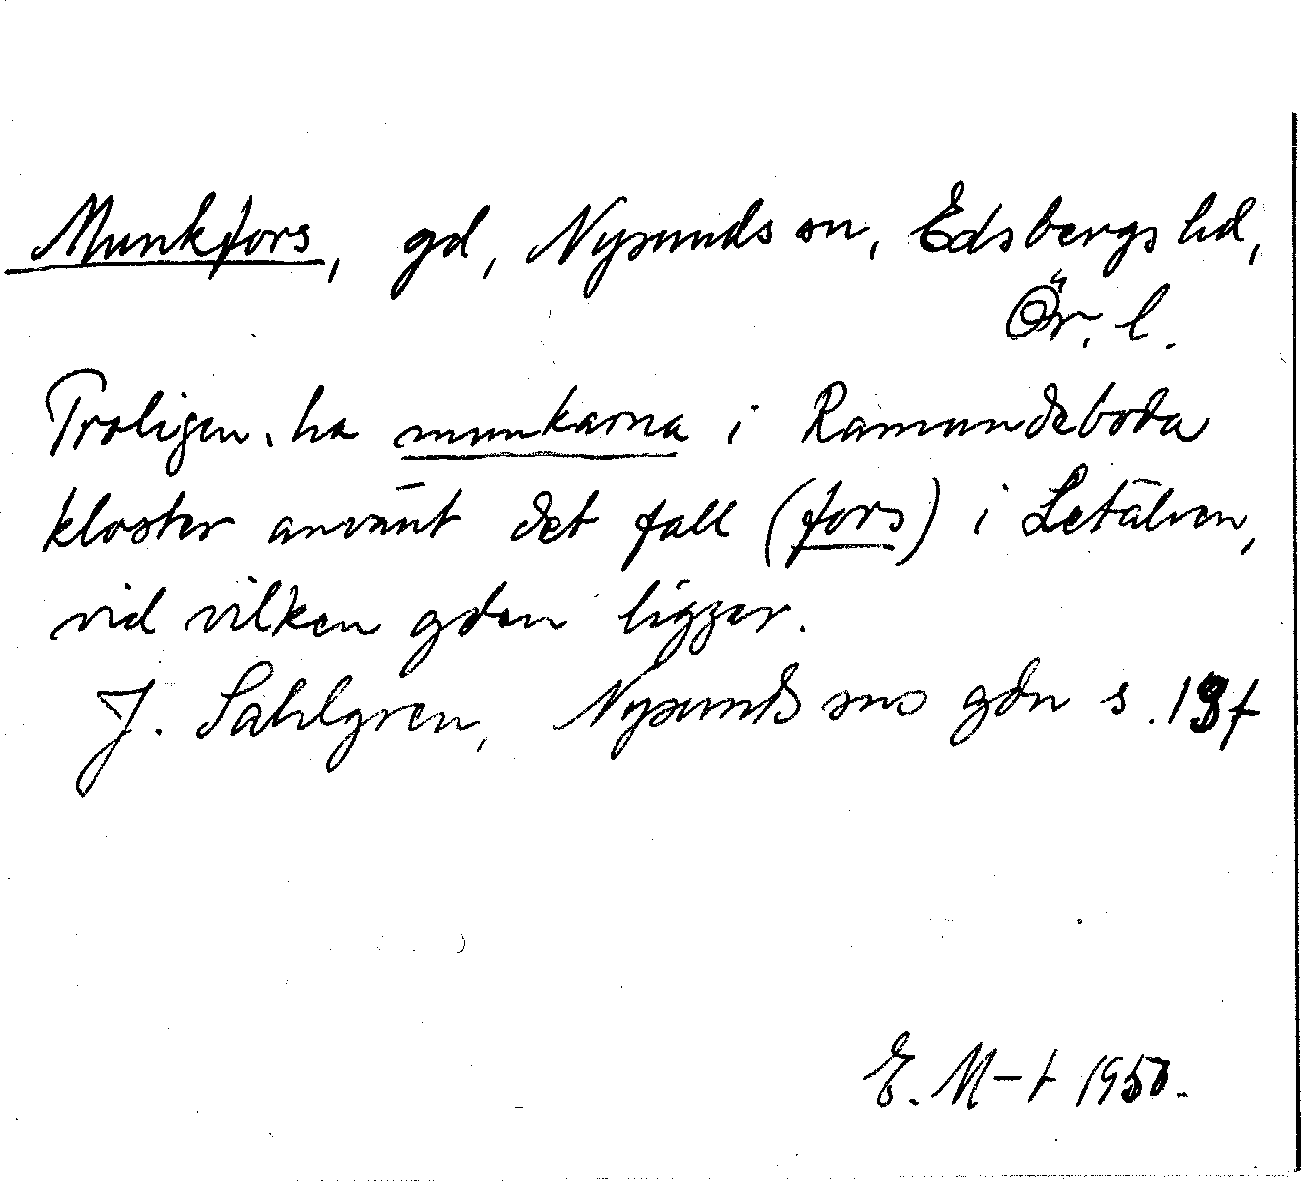 Munkfors, gd, Nysunds sn, Edsbergs hd,
Ör. l.
Troligen ha munkarna i Ramundeboda
kloster använt det fall (fors) i Letälven,
vid vilken gden ligger.
J. Sahlgren, Nysunds sns gdn s. 18f
E. M-t 1950.